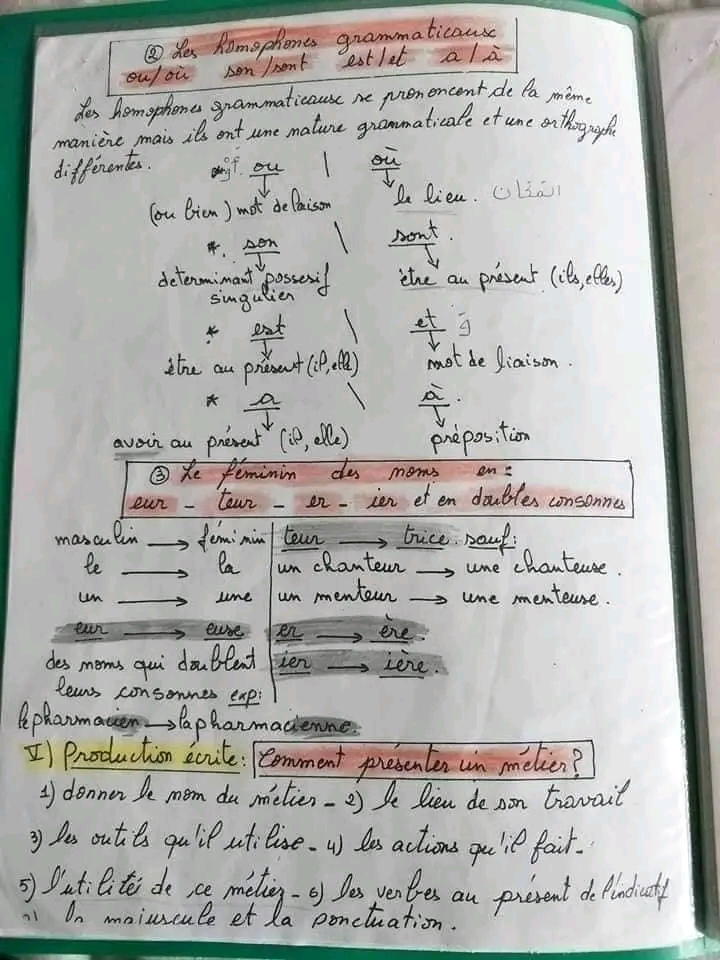 ② Les homophones grammaticaux
ou/où son/sont est/et a/à
Les homophones grammaticaux se prononcent de la même
manière mais ils ont une nature grammaticale et une orthographe
différentes.
ou \ où
(ou bien) mot de laison le lieu. المكان
* son \ sont.
determinant possesif être au présent (ils, elles)
singulier
* est \ et وَ
être au présent (il, elle) mot de liaison.
* a \ à.
avoir au présent (il, elle) préposition
③ Le féminin des noms en:
eur - teur - er - ier et en doubles consonnes
masculin → féminin teur → trice sauf:
le → la un chanteur → une chanteuse.
un → une un menteur → une menteuse.
eur → euse er → ère.
des noms qui doublent ier → ière.
leurs consonnes exp:
le pharmacien → la pharmacienne.
V) Production écrite: Comment présenter un métier?
1) donner le nom du métier - 2) le lieu de son travail
3) les outils qu'il utilise - 4) les actions qu'il fait -
5) l'utilité de ce métier - 6) les verbes au présent de l'indicatif
la majuscule et la ponctuation.